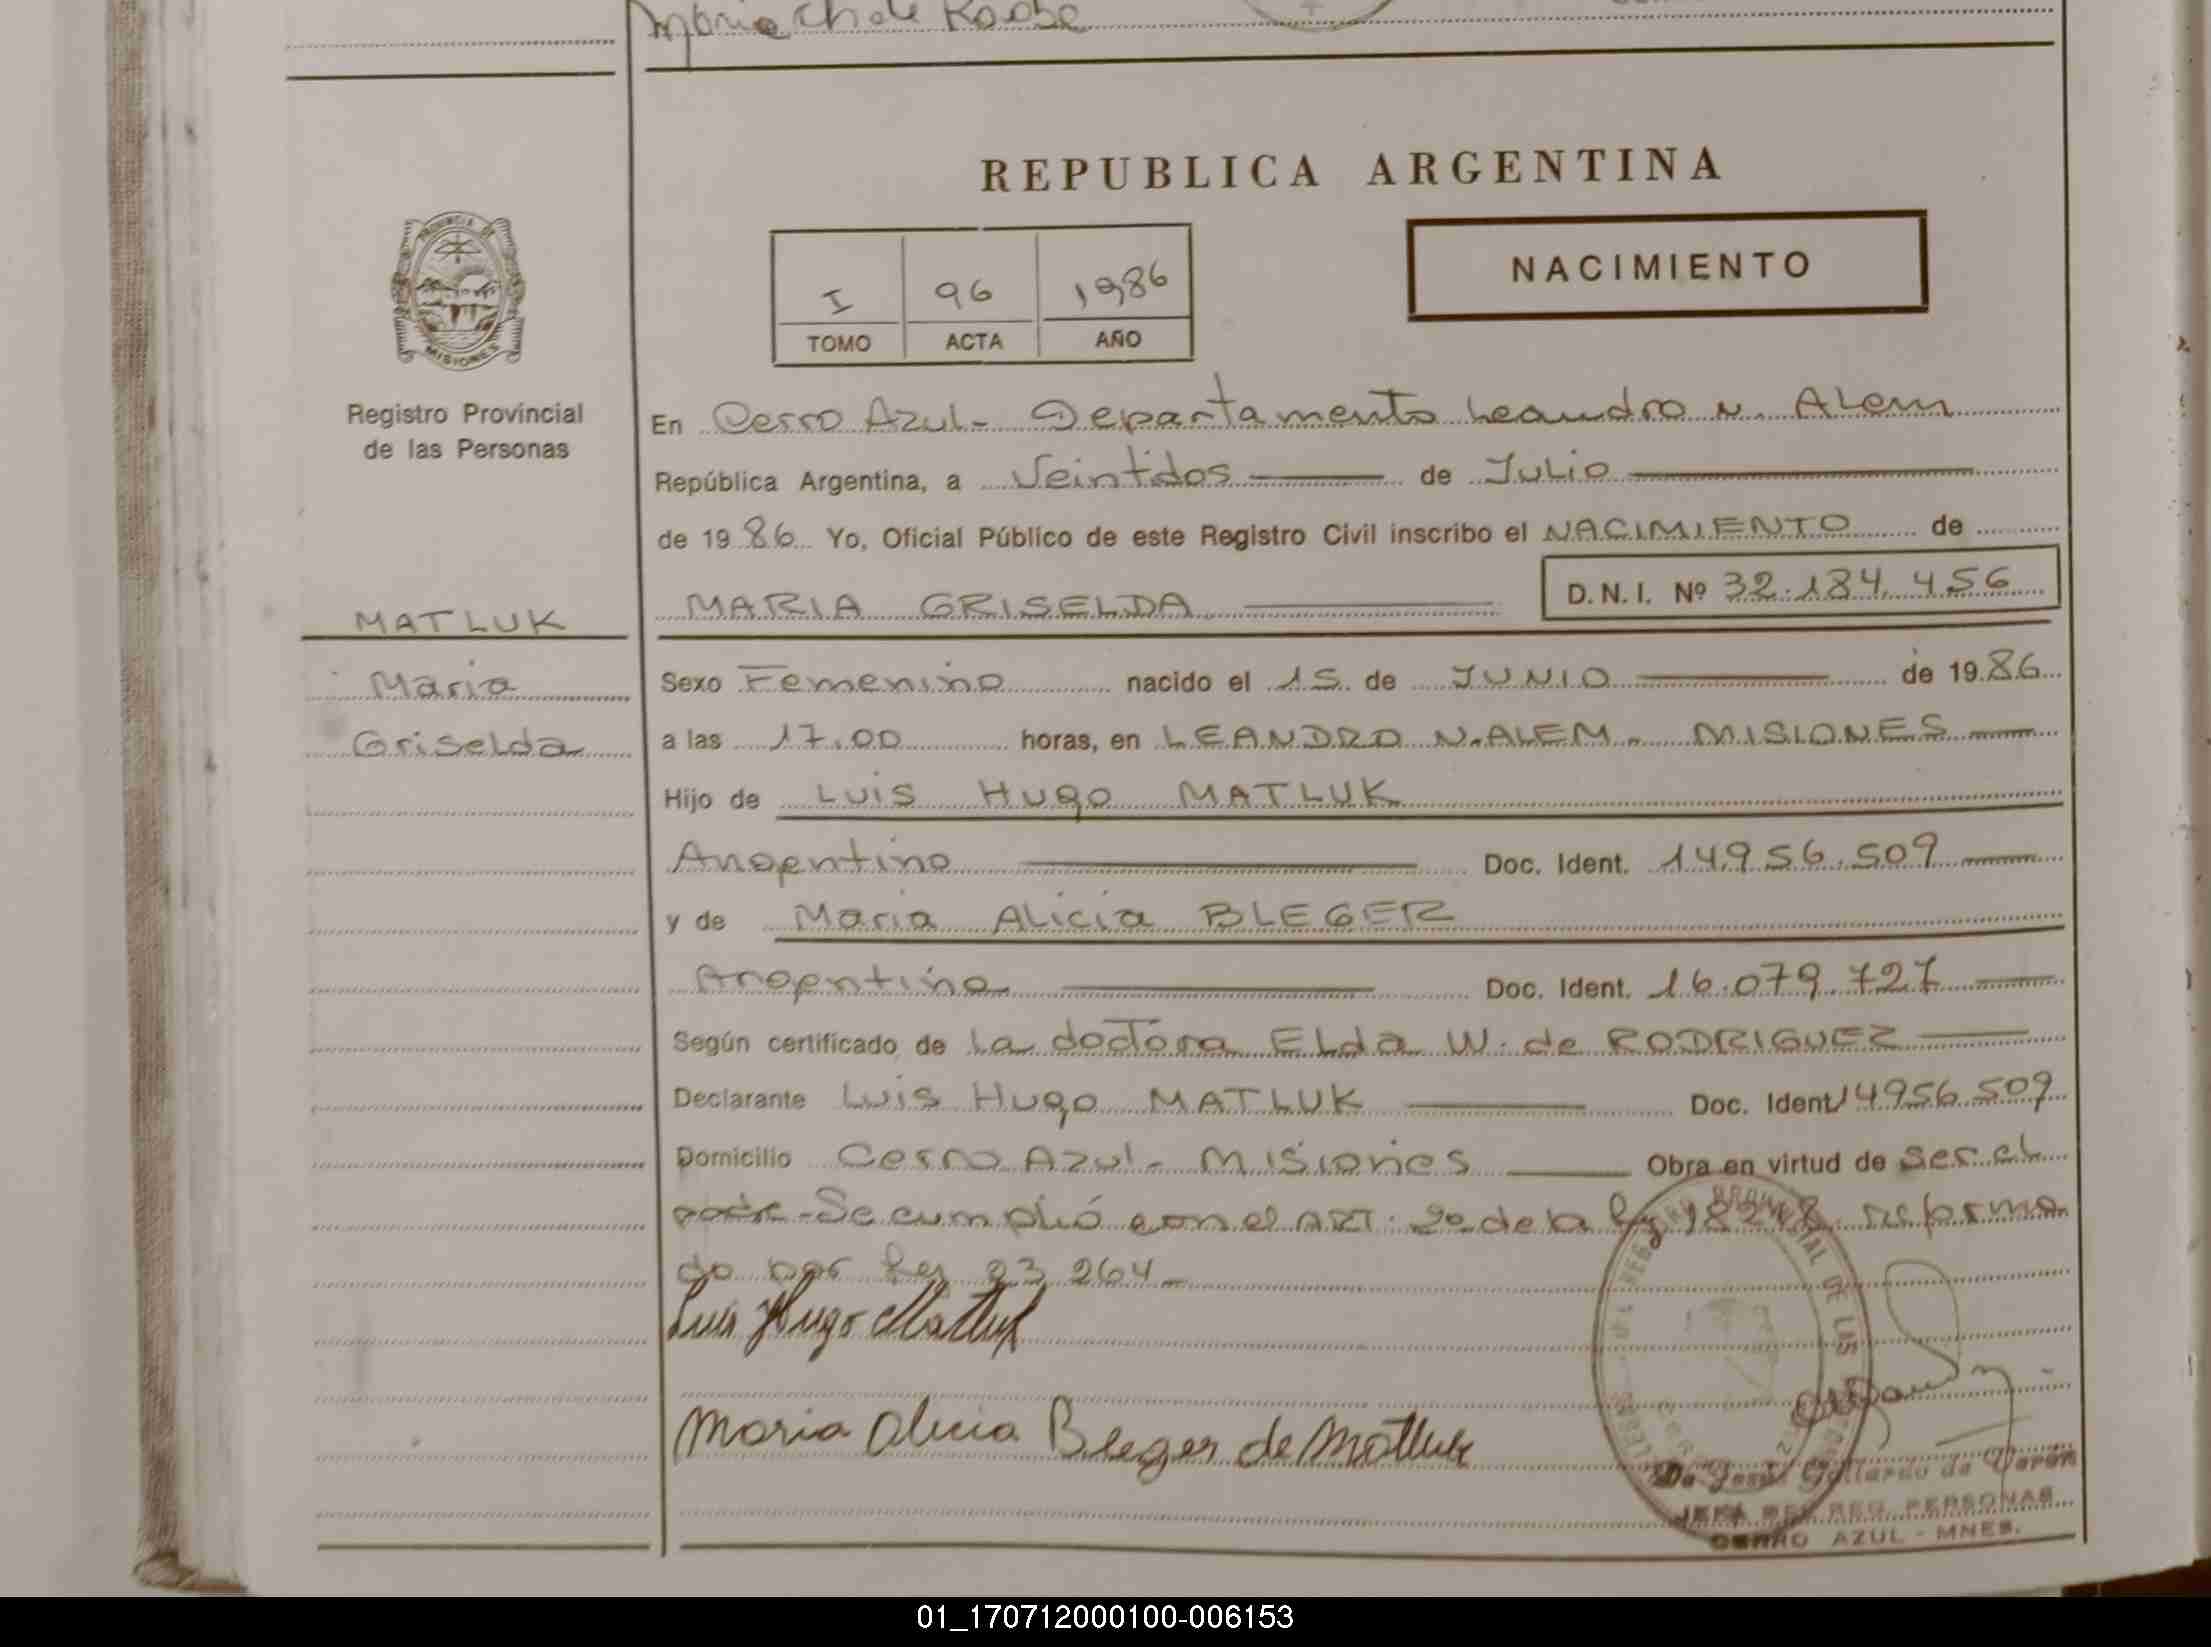 Maria
REPUBLICA ARGENTINA
PROVINCIA DE
MISIONES
NACIMIENTO
I 96 1986
TOMO ACTA AÑO
Registro Provincial
de las Personas
En Cerro Azul - Departamento Leandro N. Alem
República Argentina, a Veintidos de Julio
de 1986 Yo, Oficial Público de este Registro Civil inscribo el NACIMIENTO de
MARIA GRISELDA D.N.I. Nº 32.184.456
MATLUK
Maria
Griselda
Sexo Femenino nacido el 15 de JUNIO de 1986
a las 17.00 horas, en LEANDRO N. ALEM - MISIONES
Hijo de Luis Hugo MATLUK
Argentino Doc. Ident. 14.956.509
y de Maria Alicia BLEGER
Argentina Doc. Ident. 16.079.727
Según certificado de La doctora Elda W. de RODRIGUEZ
Declarante Luis Hugo MATLUK Doc. Ident 14956.509
Domicilio Cerro Azul - Misiones Obra en virtud de ser el
padre - Se cumplió con el ART. 2º de la ley 18248 reforma
do por ley 23 264 -
Luis Hugo Matluk
Maria Alicia Bleger de Matluk
Gallardo de
JEFA DEL REG. PERSONAS
CERRO AZUL - MNES.
01_170712000100-006153